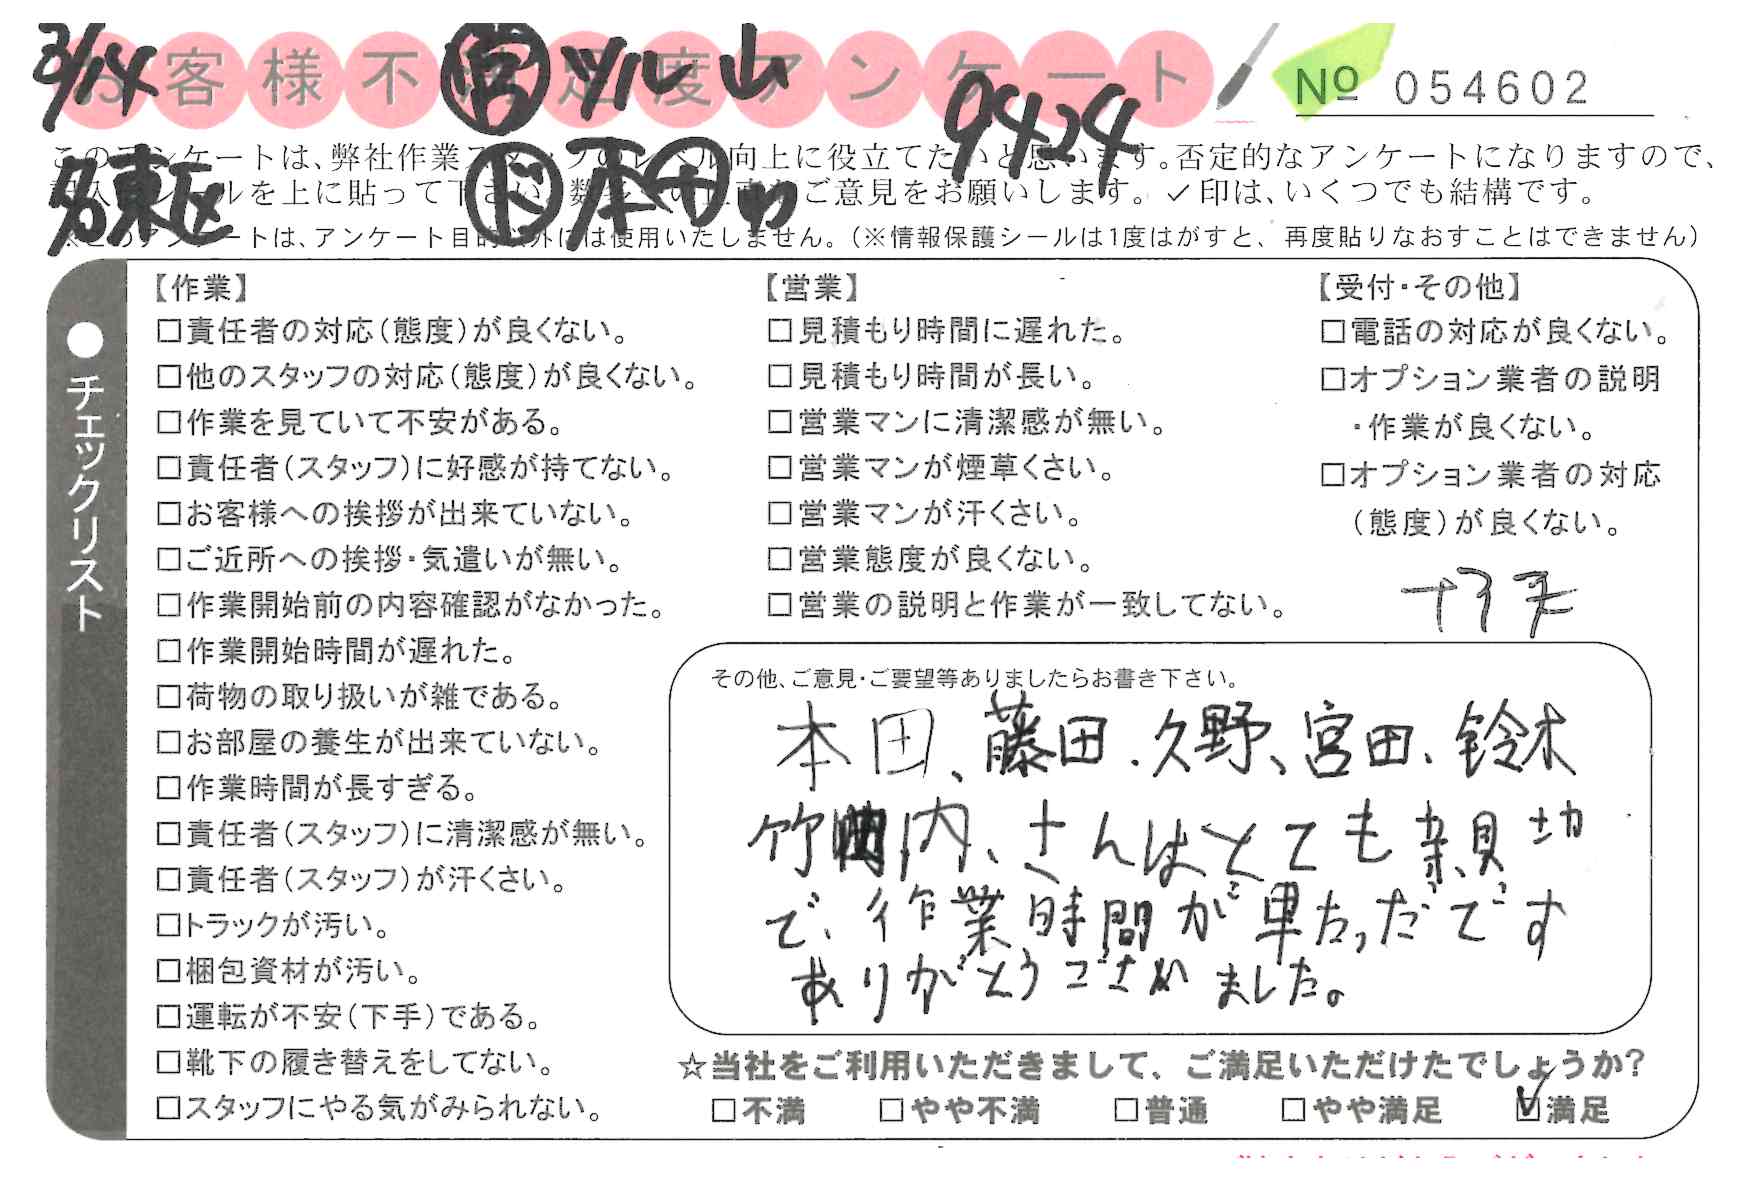 3/14
お客様不満足度アンケート
営 ツル山
9424
№ 054602
名東区
ド 本田
このアンケートは、弊社作業スタッフのレベル向上に役立てたいと思います。否定的なアンケートになりますので、
記入シールを上に貼って下さい。数多くの正直なご意見をお願いします。✓印は、いくつでも結構です。
※このアンケートは、アンケート目的以外には使用いたしません。（※情報保護シールは1度はがすと、再度貼りなおすことはできません）
●チェックリスト
【作業】
□責任者の対応（態度）が良くない。
□他のスタッフの対応（態度）が良くない。
□作業を見ていて不安がある。
□責任者（スタッフ）に好感が持てない。
□お客様への挨拶が出来ていない。
□ご近所への挨拶・気遣いが無い。
□作業開始前の内容確認がなかった。
□作業開始時間が遅れた。
□荷物の取り扱いが雑である。
□お部屋の養生が出来ていない。
□作業時間が長すぎる。
□責任者（スタッフ）に清潔感が無い。
□責任者（スタッフ）が汗くさい。
□トラックが汚い。
□梱包資材が汚い。
□運転が不安（下手）である。
□靴下の履き替えをしてない。
□スタッフにやる気がみられない。
【営業】
□見積もり時間に遅れた。
□見積もり時間が長い。
□営業マンに清潔感が無い。
□営業マンが煙草くさい。
□営業マンが汗くさい。
□営業態度が良くない。
□営業の説明と作業が一致してない。
【受付・その他】
□電話の対応が良くない。
□オプション業者の説明
・作業が良くない。
□オプション業者の対応
（態度）が良くない。
その他、ご意見・ご要望等ありましたらお書き下さい。
本田、藤田、久野、宮田、鈴木
竹内、さんはとても親切
で、作業時間が早たっだです
ありがとうございました。
☆当社をご利用いただきまして、ご満足いただけたでしょうか？
□不満 □やや不満 □普通 □やや満足 ☑満足